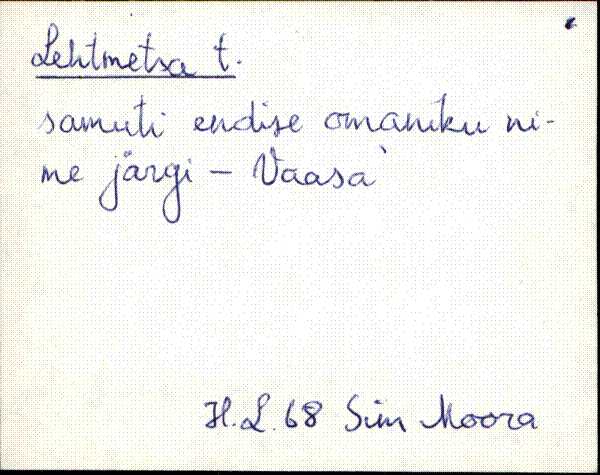 Lehtmetsa t.
samuti endise omaniku ni-
me järgi – Vaasa
H.L. 68 Siin Moora